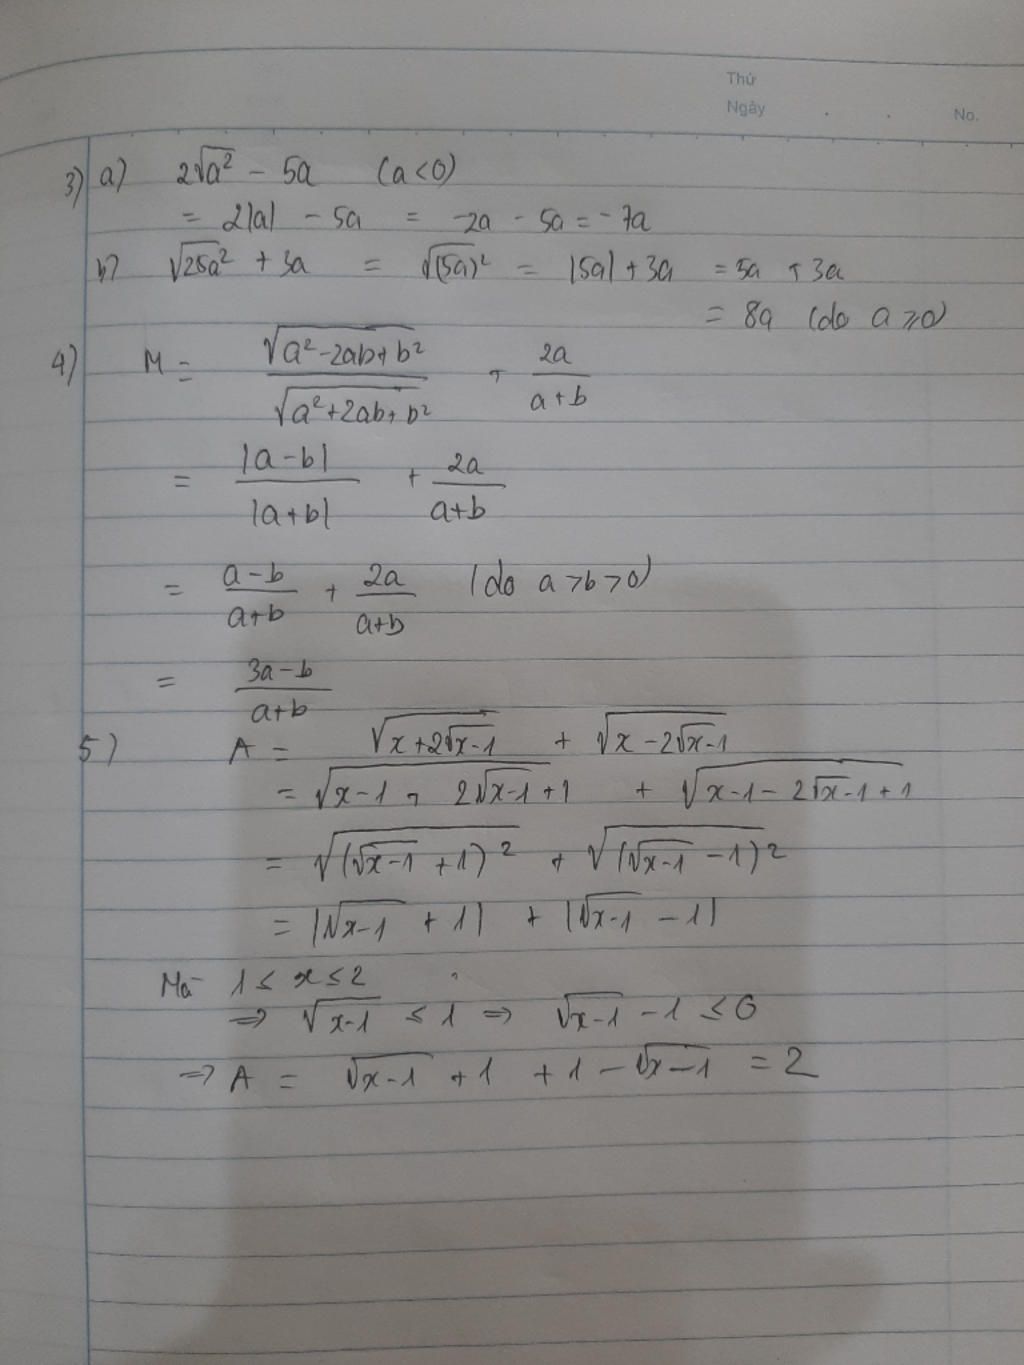 Thứ
Ngày . . No.
3) a) 2√a² - 5a (a<0)
= 2|a| - 5a = -2a - 5a = -7a
b) √25a² + 3a = √(5a)² = |5a| + 3a = 5a + 3a
= 8a (do a ≥ 0)
4) M = √(a²-2ab+b²) / √(a²+2ab+b²) + 2a/(a+b)
= |a-b| / |a+b| + 2a/(a+b)
= (a-b)/(a+b) + 2a/(a+b) (do a>b>0)
= (3a-b)/(a+b)
5) A = √(x+2√x-1) + √(x-2√x-1)
= √(x-1+2√x-1+1) + √(x-1-2√x-1+1)
= √(√x-1 +1)² + √(√x-1 -1)²
= |√x-1 + 1| + |√x-1 - 1|
Mà 1 ≤ x ≤ 2
⇒ √x-1 ≤ 1 ⇒ √x-1 - 1 ≤ 0
⇒ A = √x-1 + 1 + 1 - √x-1 = 2